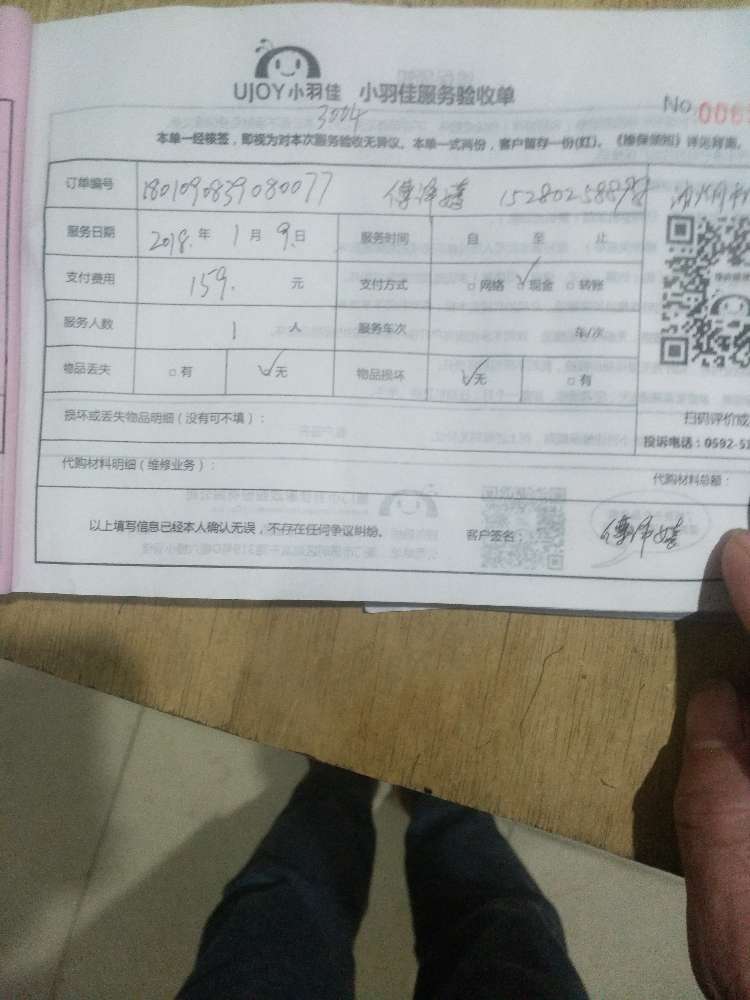 UJOY小羽佳 小羽佳服务验收单
No
3004
本单一经核签，即视为对本次服务验收无异议。本单一式两份，客户留存一份(红)。《维保须知》详见背面。
订单编号 1801090839080077 傅泽嬉
服务日期 2018.年 1月 9.日 服务时间 自 至 止
支付费用 159. 元 支付方式 □网络 ☑现金 □转账
服务人数 1 人 服务车次 车/次
物品丢失 □有 ☑无 物品损坏 ☑无 □有
损坏或丢失物品明细（没有可不填）：
扫码评价或
投诉电话：0592-51
代购材料明细（维修业务）：
代购材料总额：
以上填写信息已经本人确认无误，不存在任何争议纠纷。 客户签名： 傅泽嬉